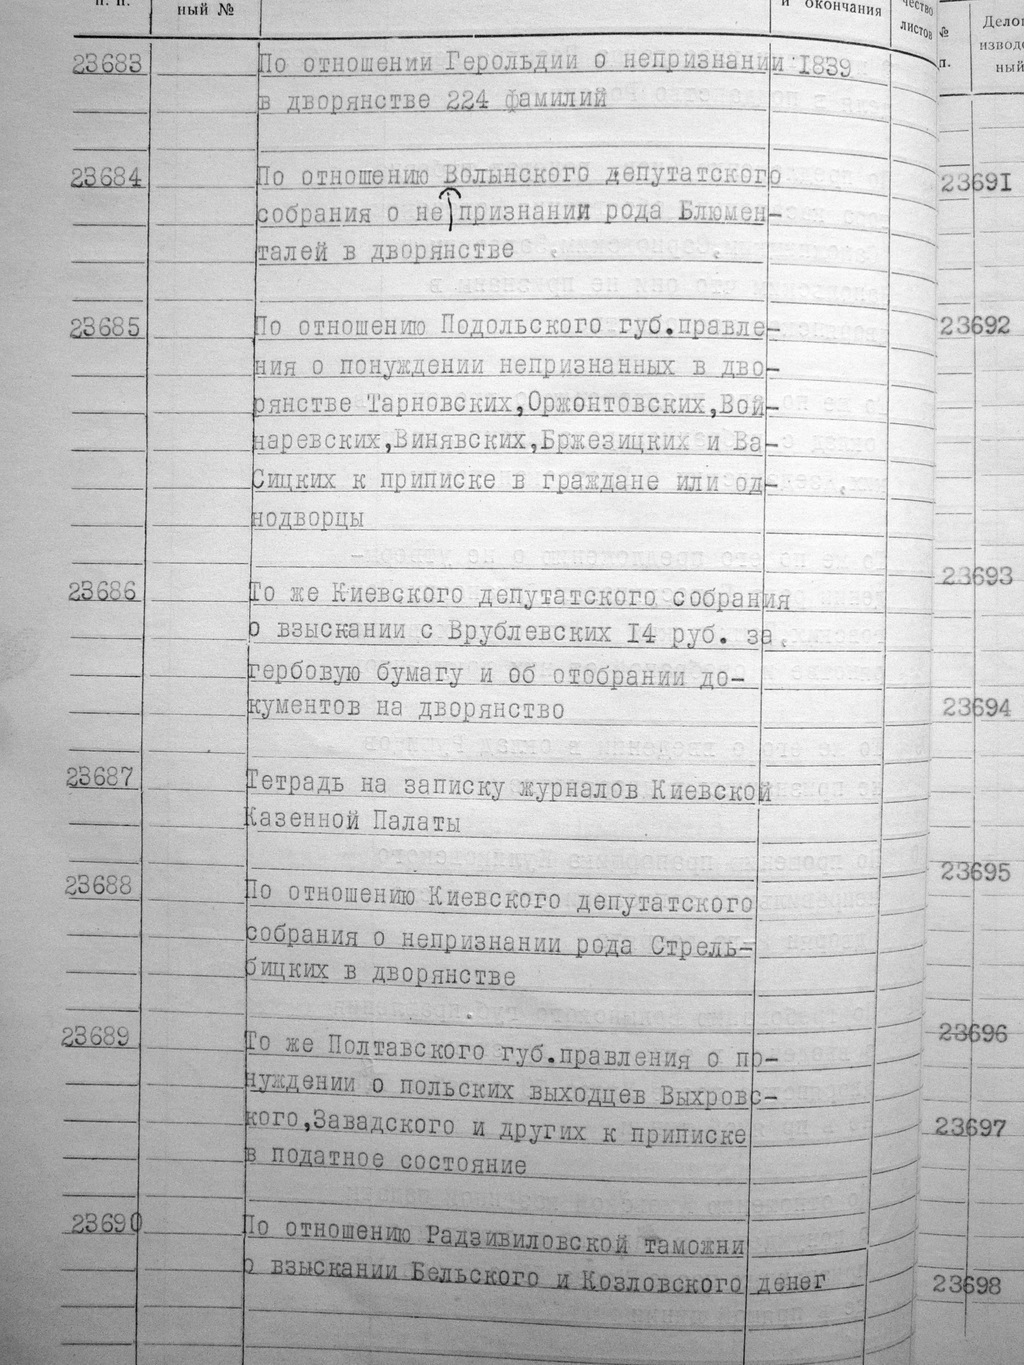 п. п.
ный №
и окончания
чество
листов
№
п.
Делоп
изводс
ный
23683 По отношении Герольдии о непризнании 1839
в дворянстве 224 фамилий
23684 По отношению Волынского депутатского
собрания о не признании рода Блюмен-
талей в дворянстве
23685 По отношению Подольского губ.правле-
ния о понуждении непризнанных в дво-
рянстве Тарновских,Оржонтовских,Вой-
наревских,Винявских,Бржезицких и Ва-
Сицких к приписке в граждане или од-
нодворцы
23686 То же Киевского депутатского собрания
о взыскании с Врублевских 14 руб. за
гербовую бумагу и об отобрании до-
кументов на дворянство
23687 Тетрадь на записку журналов Киевской
Казенной Палаты
23688 По отношению Киевского депутатского
собрания о непризнании рода Стрель-
бицких в дворянстве
23689 То же Полтавского губ.правления о по-
нуждении о польских выходцев Выхровс-
кого,Завадского и других к приписке
в податное состояние
23690 По отношению Радзивиловской таможни
о взыскании Бельского и Козловского денег
23691
23692
23693
23694
23695
23696
23697
23698